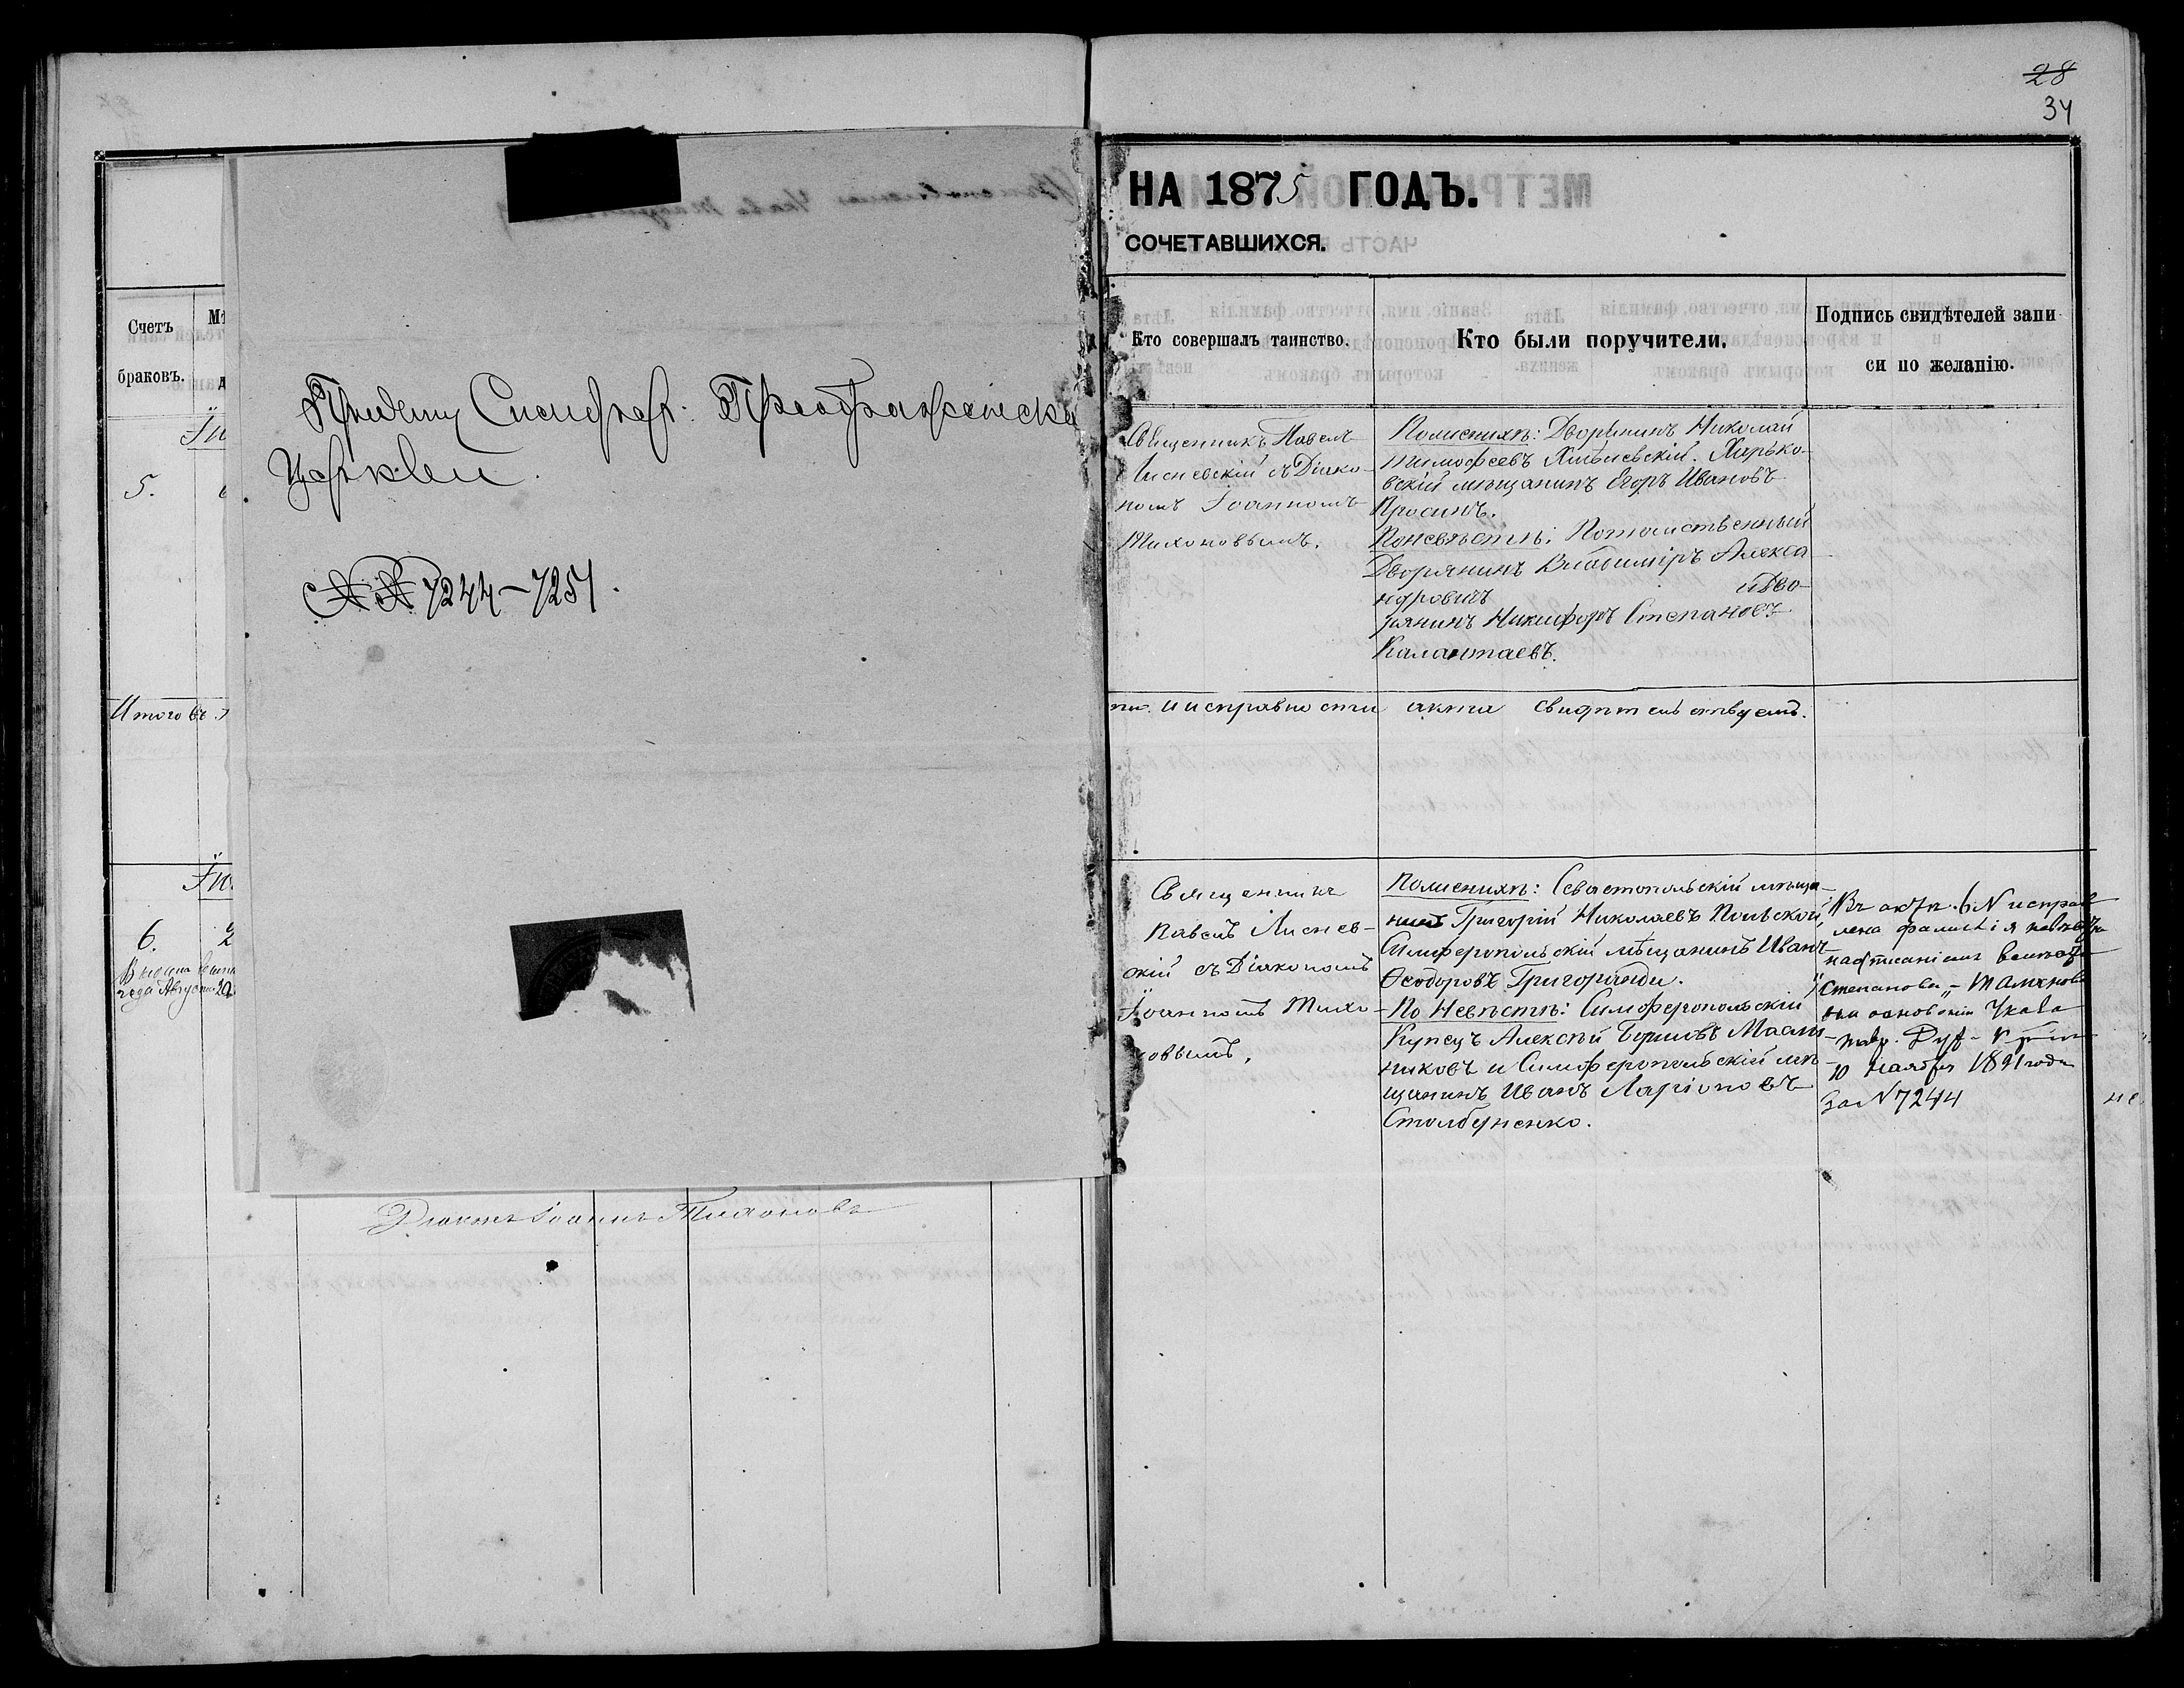 28
34
Счетъ
браковъ.
5.
Итого въ
6.
Причту Симфероп. Преображенской
Церкви.
№№ 7244–7251.
Діаконъ Іоаннъ Тихоновъ
НА 1875 ГОДЪ.
СОЧЕТАВШИХСЯ.
Кто совершалъ таинство.
Кто были поручители.
Подпись свидѣтелей запи
си по желанію.
Священникъ Павелъ
Лисневскій съ Діако-
номъ Іоанномъ
Тихоновымъ.
По женихѣ: Дворянинъ Николай
Тимофеевъ Харько-
вскій мѣщанинъ Егоръ Ивановъ
Просинъ.
По невѣстѣ: Потомственный
Дворянинъ Владиміръ Алекса
ндровичъ и Дво-
рянинъ Никифоръ Степановъ
Калантаевъ.
и исправности акта свидѣтельствуемъ.
Священникъ
Павелъ Лиснев-
скій съ Діакономъ
Іоанномъ Тихо-
новымъ.
По женихѣ: Севастопольскій мѣща-
нинъ Григорій Николаевъ Польской,
Симферопольскій мѣщанинъ Иванъ
Ѳеодоровъ Григоріяди.
По Невѣстѣ: Симферопольскій
Купецъ Алексѣй
никовъ и Симферопольскій мѣ
щанинъ Иванъ Ларіоновъ
Столбуненко.
Въ актѣ 6 № исправ
лена фамилія
надписаніемъ вмѣсто
"Степанова" –
на основаніи Указа
Тавр. Дух.
10 Ноября 1891 года
За № 7244